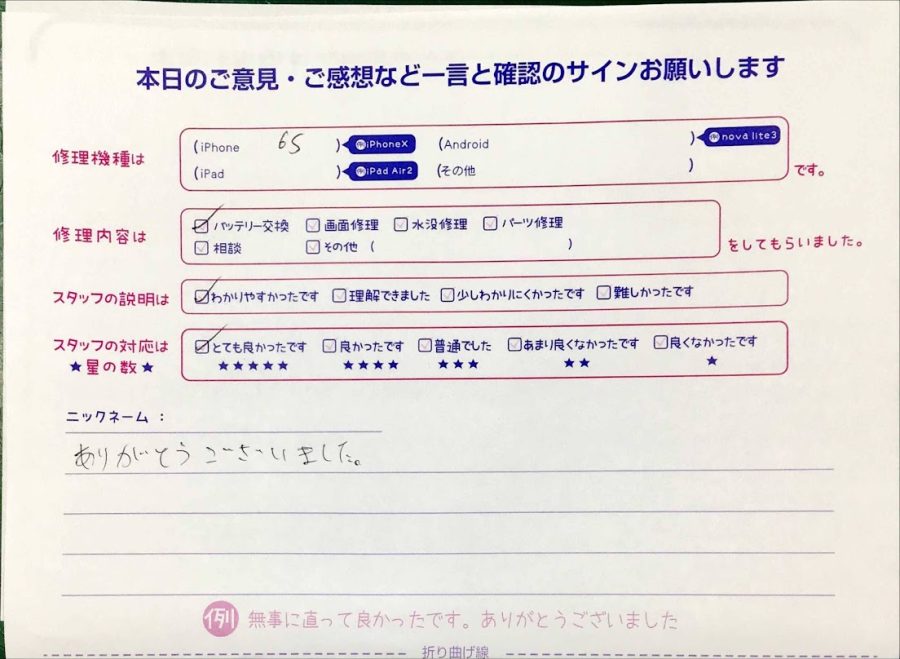 本日のご意見・ご感想など一言と確認のサインお願いします
修理機種は
(iPhone 6S ) iPhoneX (Android ) nova lite3
(iPad ) iPad Air2 (その他 )
です。
修理内容は
バッテリー交換 画面修理 水没修理 パーツ修理
相談 その他 ( )
をしてもらいました。
スタッフの説明は
わかりやすかったです 理解できました 少しわかりにくかったです 難しかったです
スタッフの対応は
★星の数★
とても良かったです 良かったです 普通でした あまり良くなかったです 良くなかったです
★★★★★ ★★★★ ★★★ ★★ ★
ニックネーム：
ありがとうございました。
例 無事に直って良かったです。ありがとうございました
折り曲げ線